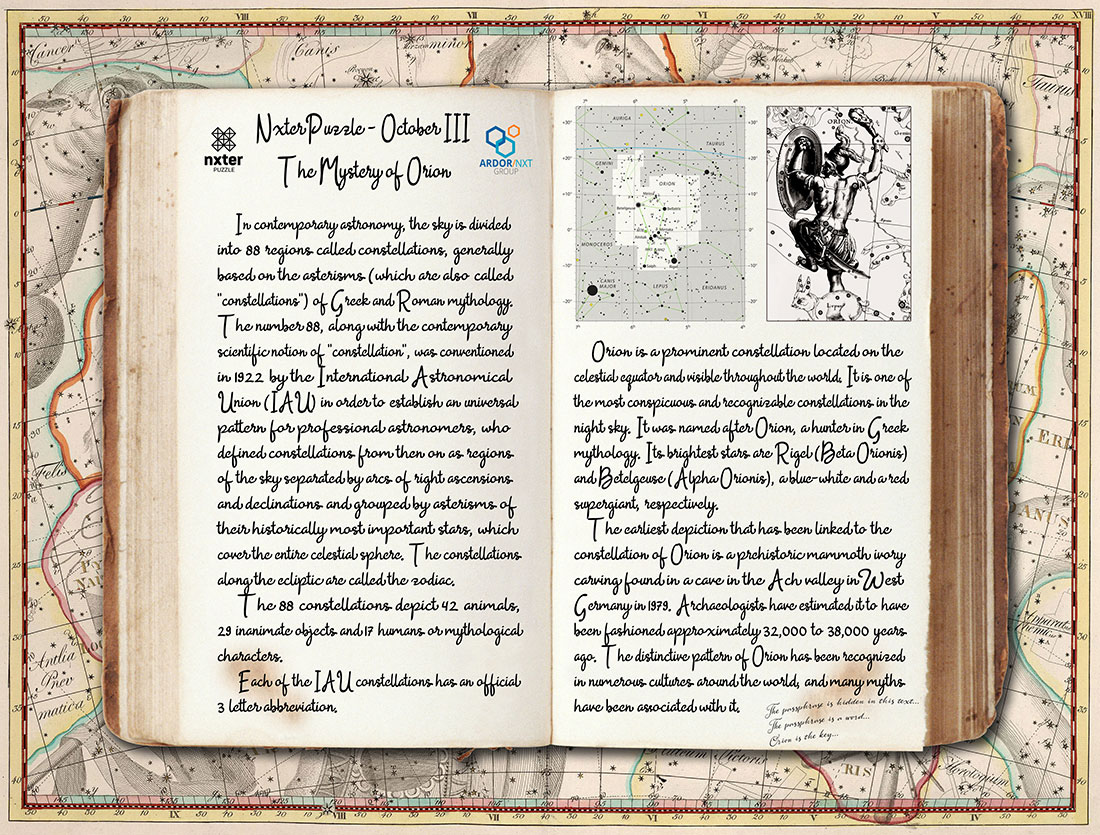 NxterPuzzle - October III
The Mystery of Orion
nxter
PUZZLE
ARDOR/NXT
GROUP
In contemporary astronomy, the sky is divided
into 88 regions called constellations, generally
based on the asterisms (which are also called
"constellations") of Greek and Roman mythology.
The number 88, along with the contemporary
scientific notion of "constellation", was conventioned
in 1922 by the International Astronomical
Union (IAU) in order to establish an universal
pattern for professional astronomers, who
defined constellations from then on as regions
of the sky separated by arcs of right ascensions
and declinations and grouped by asterisms of
their historically most important stars, which
cover the entire celestial sphere. The constellations
along the ecliptic are called the zodiac.
The 88 constellations depict 42 animals,
29 inanimate objects and 17 humans or mythological
characters.
Each of the IAU constellations has an official
3 letter abbreviation.
AURIGA
TAURUS
GEMINI
ORION
MONOCEROS
CANIS
MAJOR
LEPUS
ERIDANUS
ORION.
Lepus
Orion is a prominent constellation located on the
celestial equator and visible throughout the world. It is one of
the most conspicuous and recognizable constellations in the
night sky. It was named after Orion, a hunter in Greek
mythology. Its brightest stars are Rigel (Beta Orionis)
and Betelgeuse (Alpha Orionis), a blue-white and a red
supergiant, respectively.
The earliest depiction that has been linked to the
constellation of Orion is a prehistoric mammoth ivory
carving found in a cave in the Ach valley in West
Germany in 1979. Archaeologists have estimated it to have
been fashioned approximately 32,000 to 38,000 years
ago. The distinctive pattern of Orion has been recognized
in numerous cultures around the world, and many myths
have been associated with it.
The passphrase is hidden in this text...
The passphrase is a word...
Orion is the key...
Cancer
Canis
minor
Taurus
Felis
Antlia
Pnev
matica
Horologium
VIII
VII
VI
V
XVIII
IX
VIII
VII
VI
IV